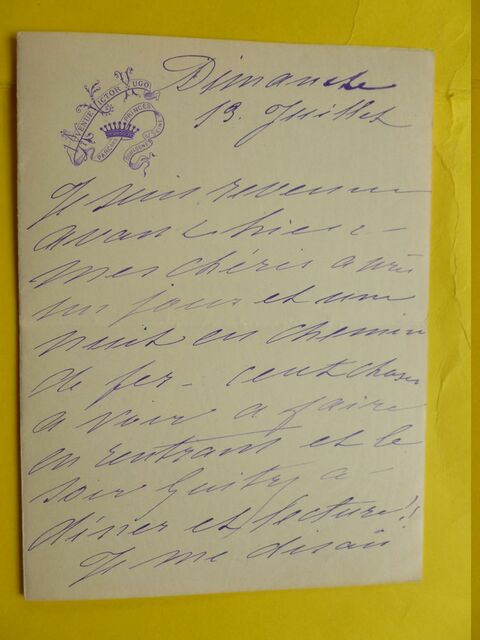 AVENUE VICTOR HUGO
PARC DES PRINCES
BOULOGNE S/ SEINE
Dimanche
13. Juillet
Je suis revenue
avant hier -
mes chéris après
un jour et une
nuit en chemin
de fer - cent choses
a voir a faire
en rentrant et le
soir Guitry à -
dîner et lecture!!
Je me disais